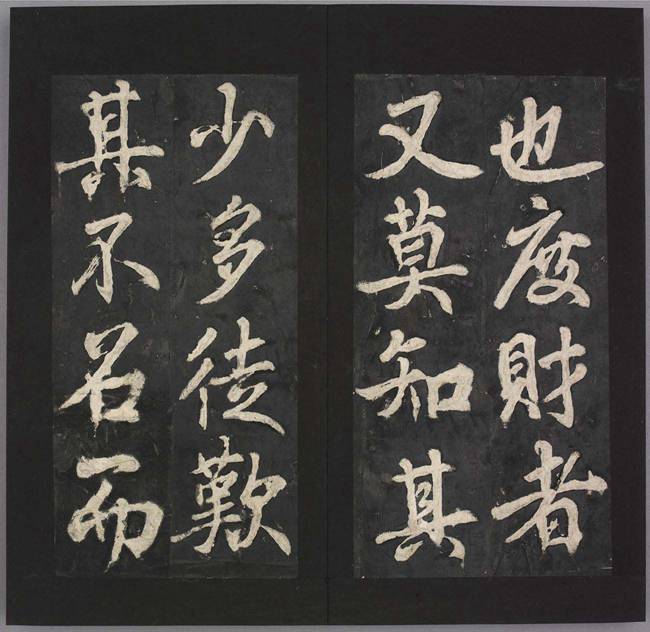 也度財者
又莫知其
少多徒歎
其不名而